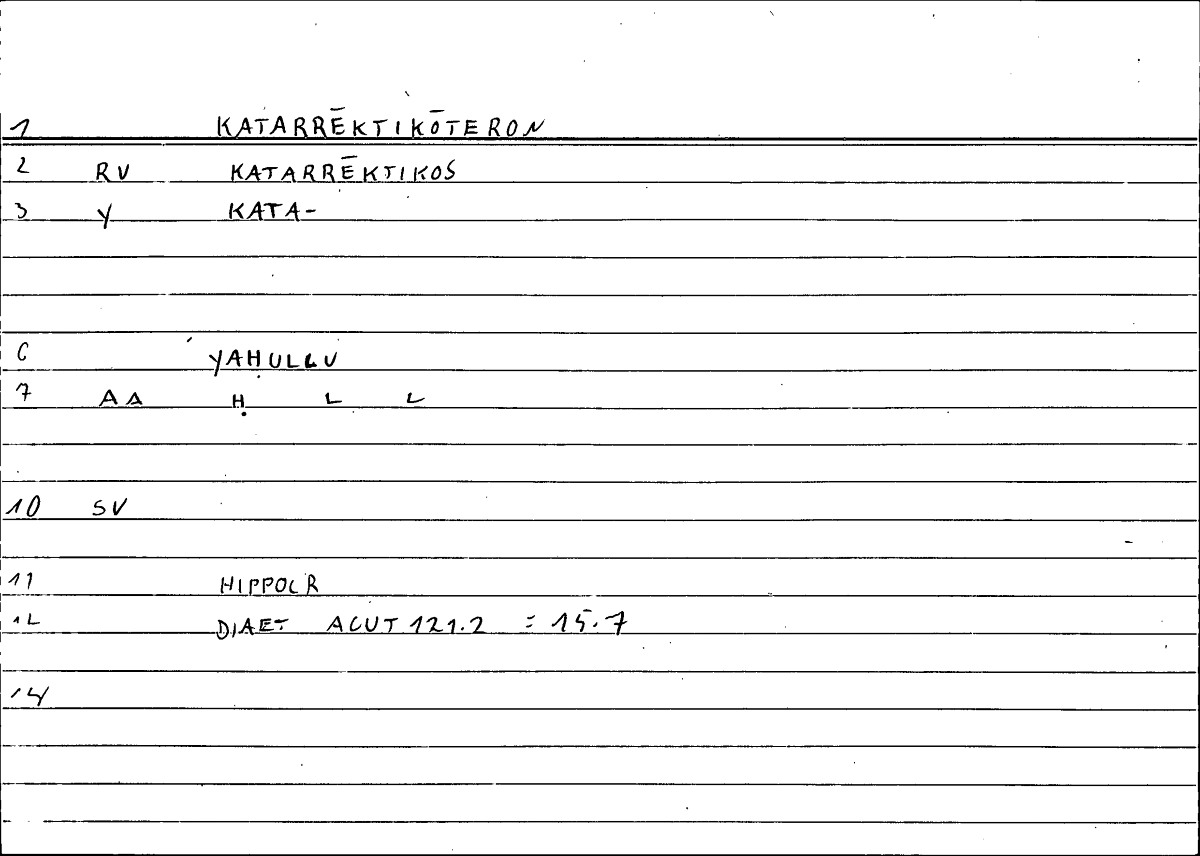 1 KATARRĒKTIKŌTERON
2 RV KATARRĒKTIKOS
3 Y KATA-
6 YAḤULLU
7 AA Ḥ L L
10 SV
11 HIPPOCR
12 DIAET ACUT 121.2 = 15.7
14